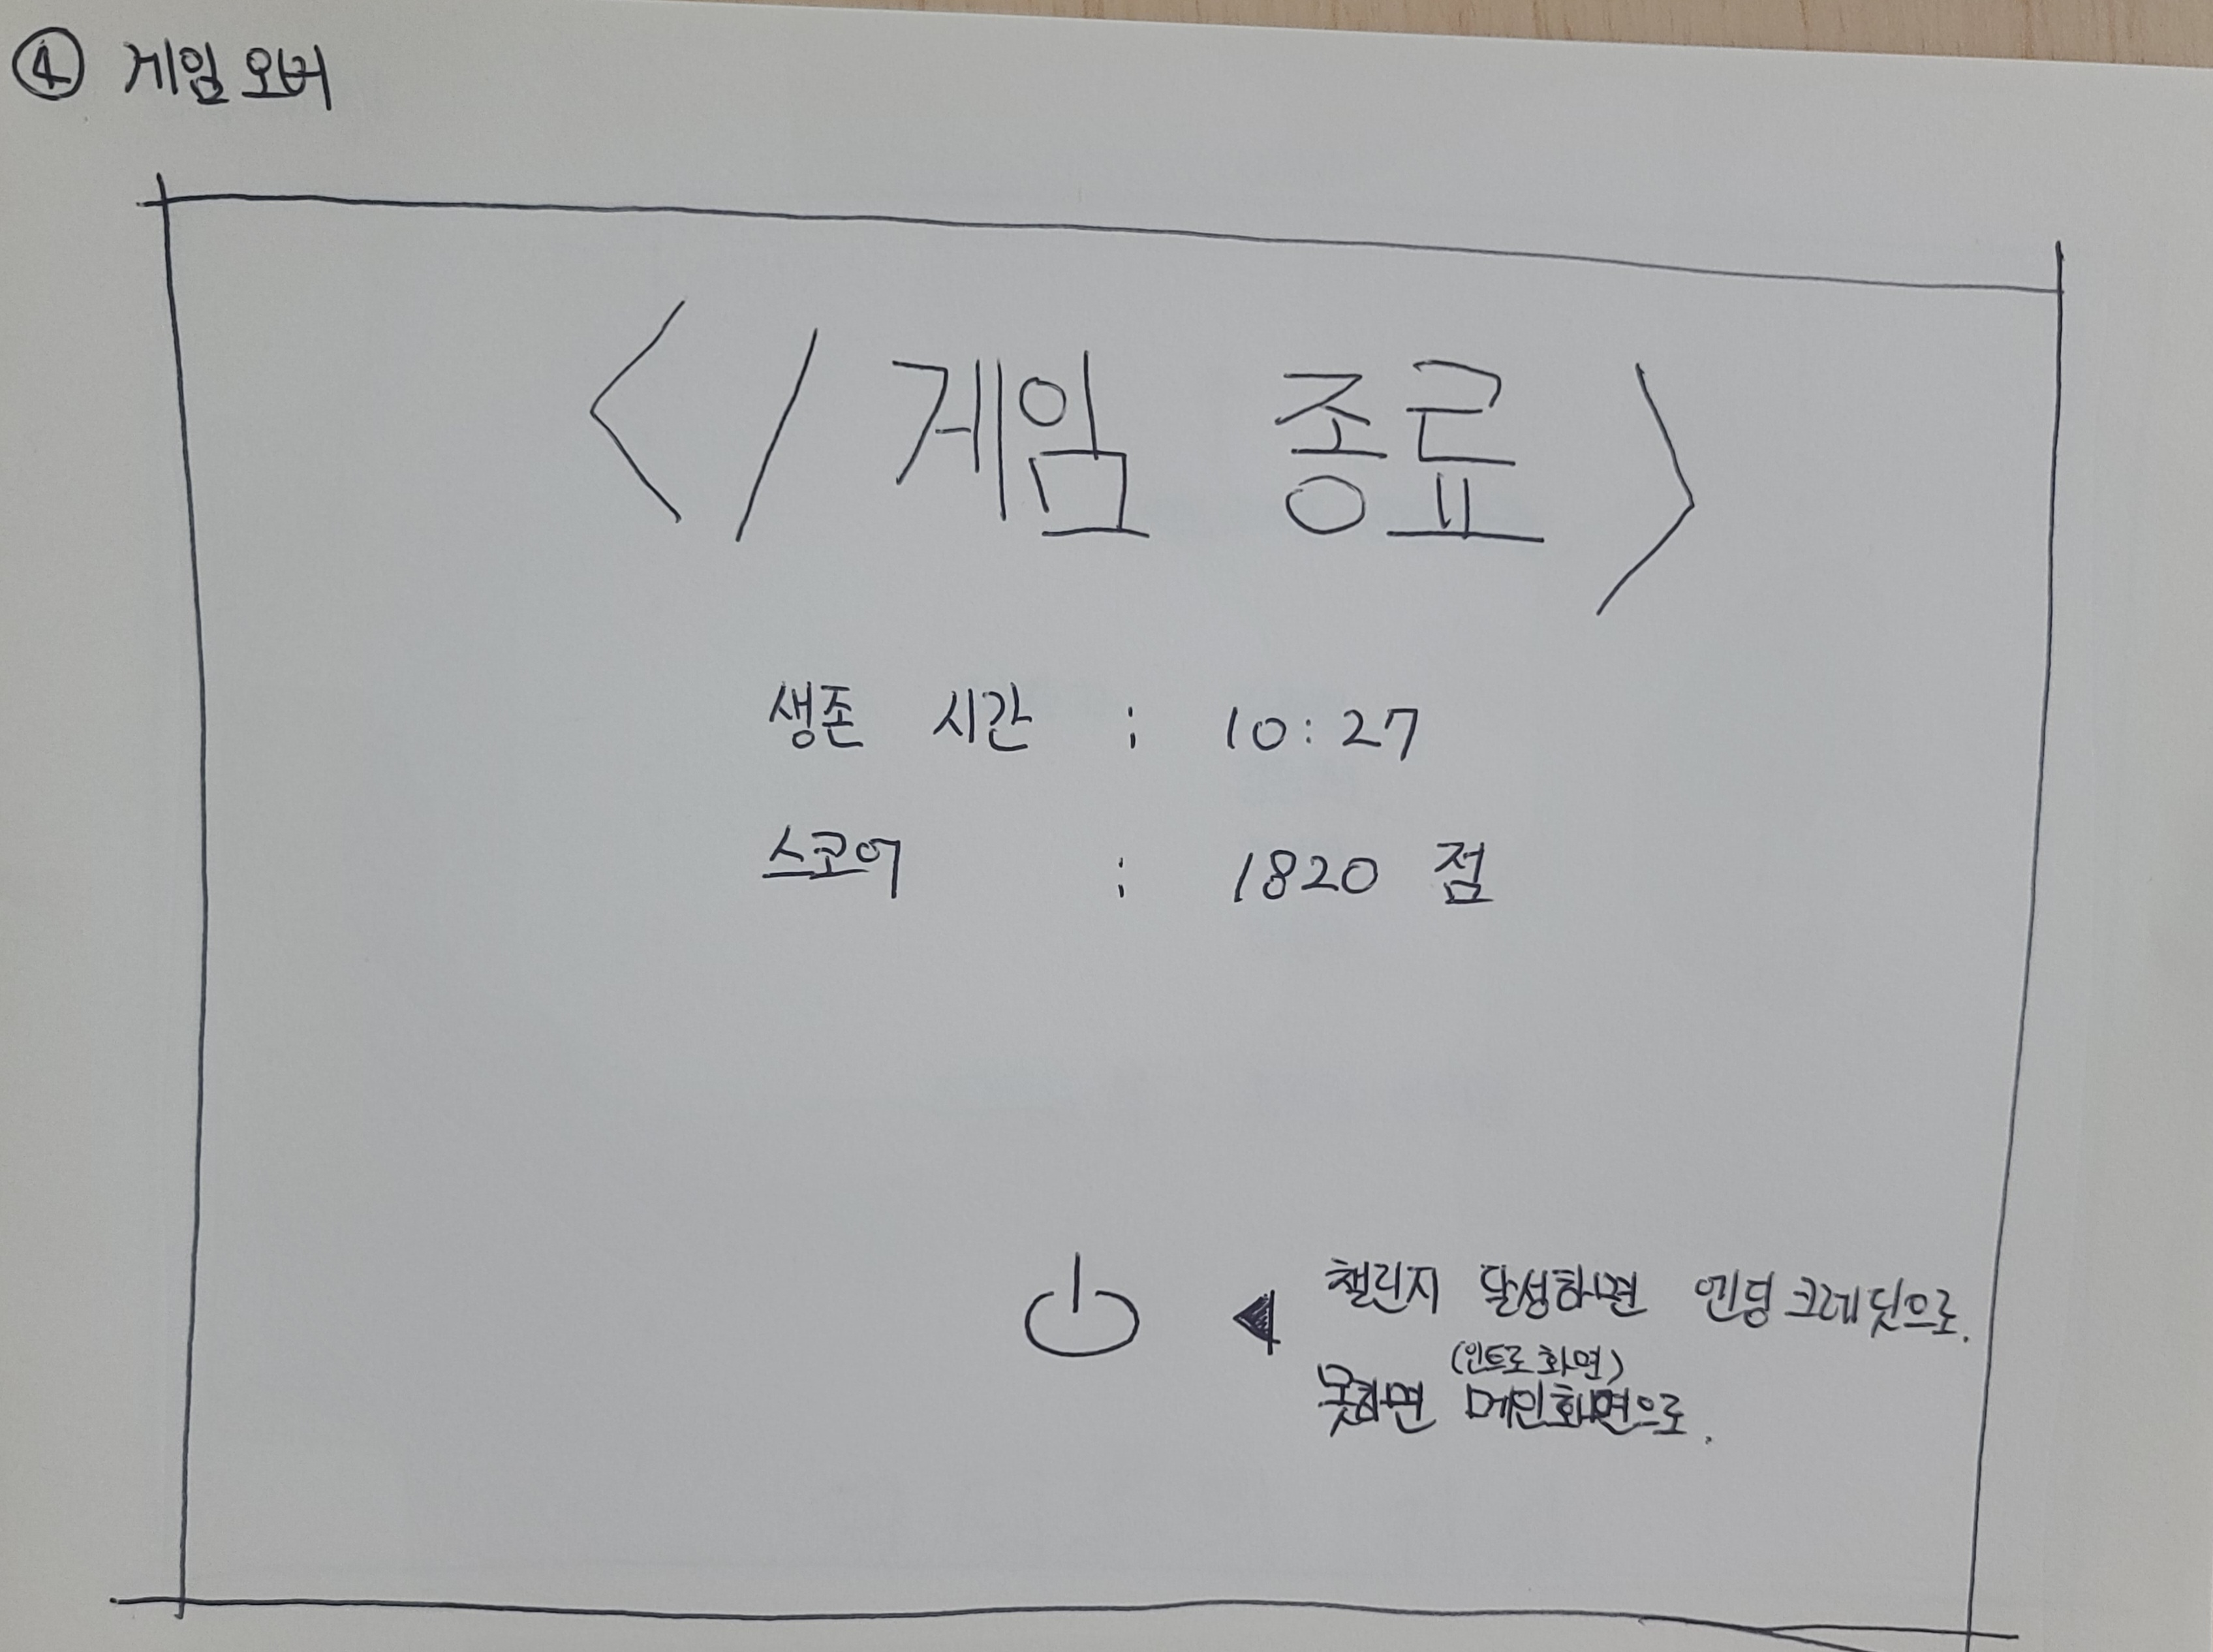 ④ 게임 오버
</ 게임 종료 >
생존 시간 : 10:27
스코어 : 1820 점
챌린지 달성하면 엔딩크레딧으로.
(인트로 화면)
못하면 메인화면으로.